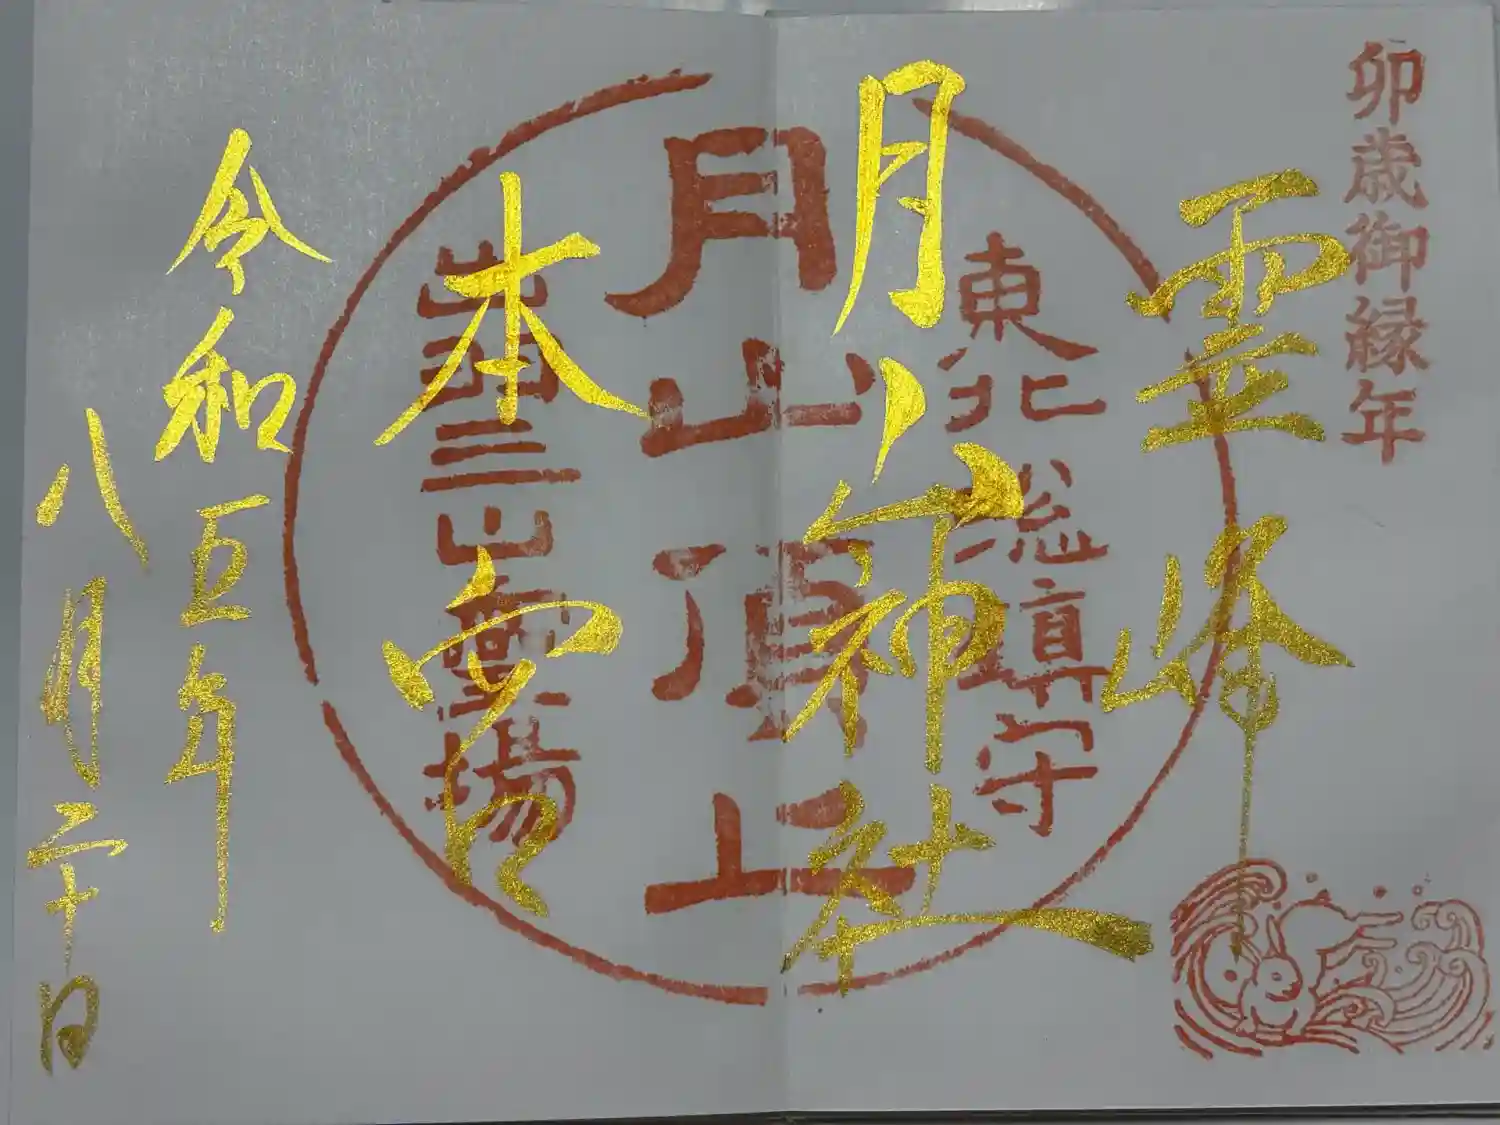 卯歳御縁年
霊峰
東北総鎮守
月山神社
月山頂上
出羽三山霊場
本宮
令和五年
八月二十日